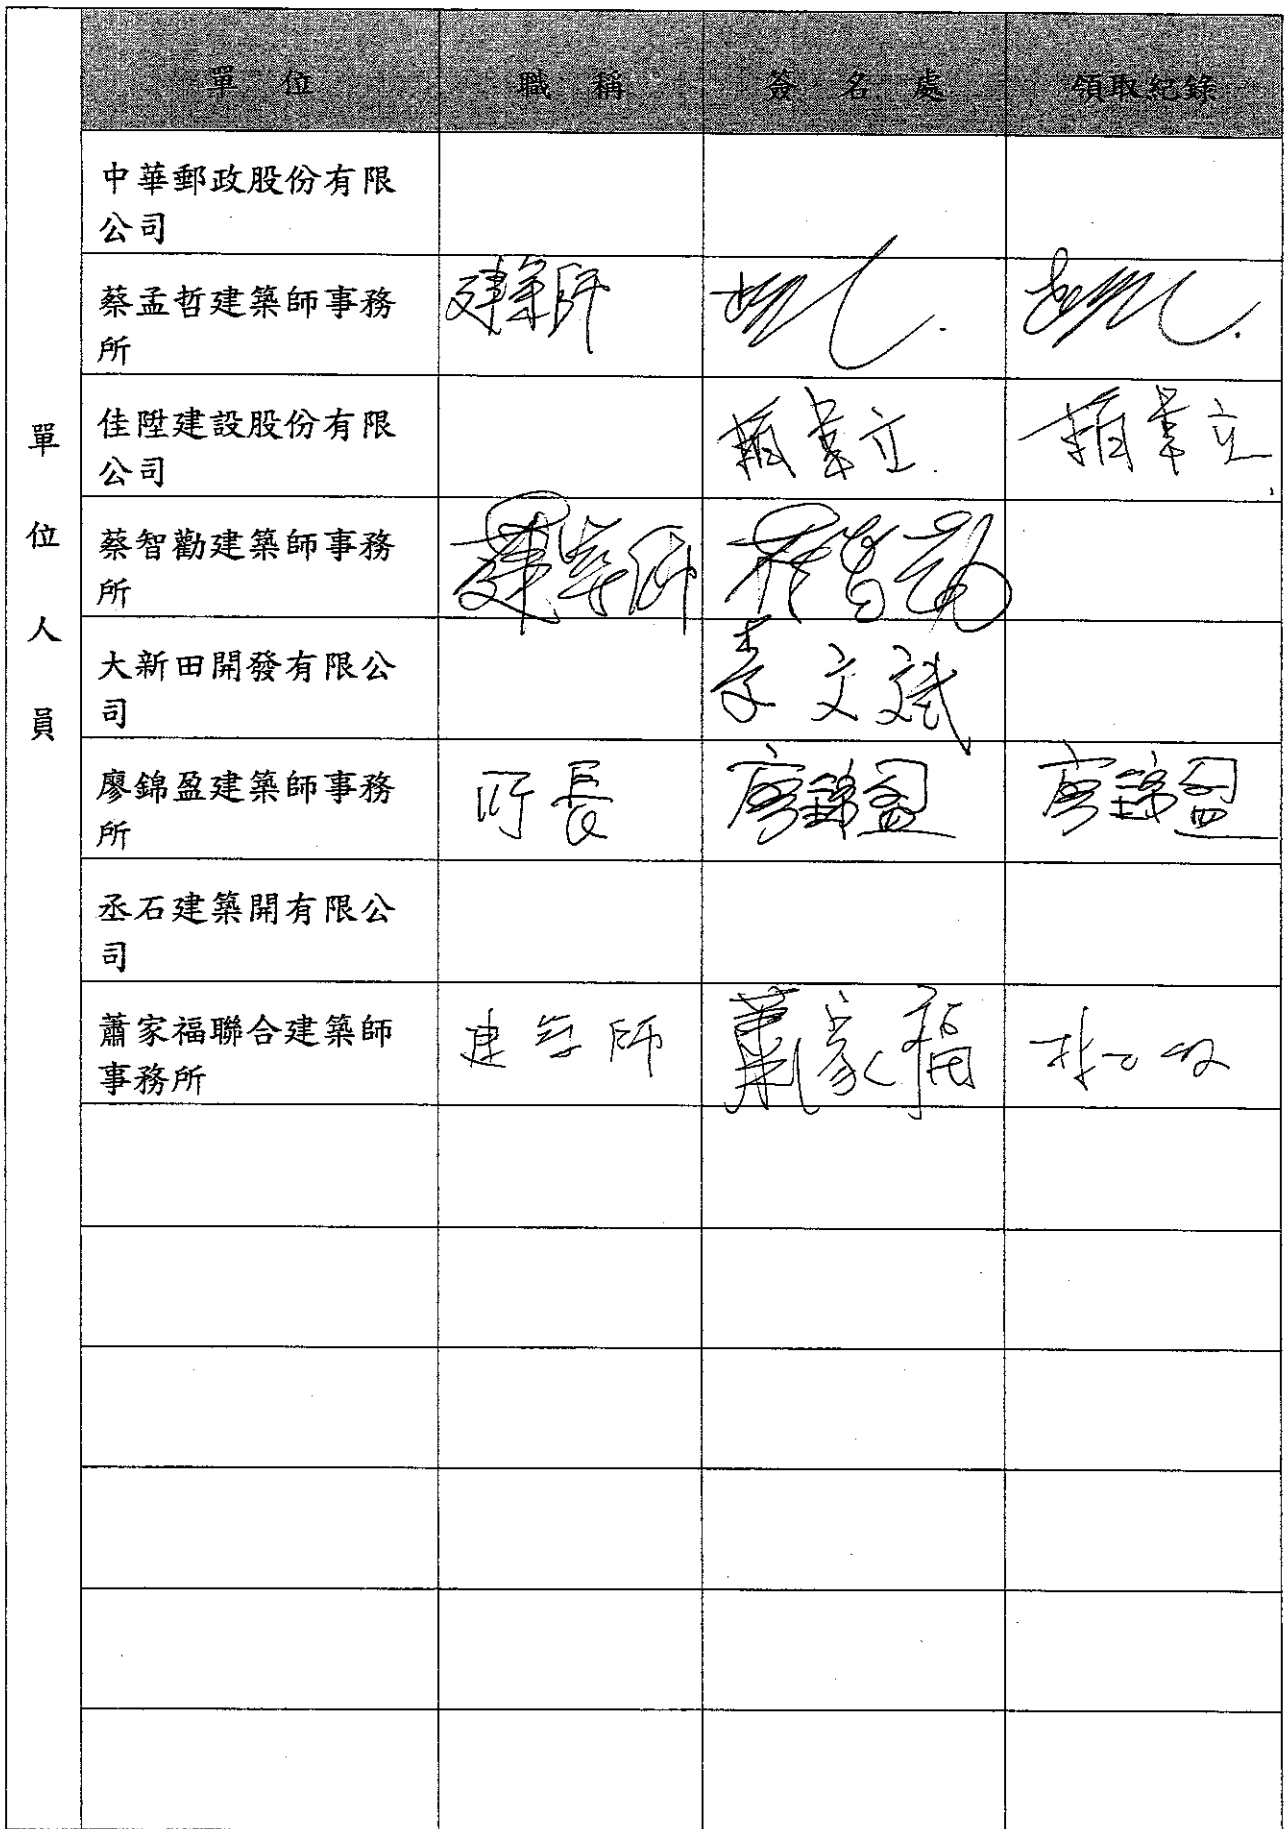 單位 職稱 簽名處 領取紀錄
單位人員
中華郵政股份有限
公司
蔡孟哲建築師事務
所
建築師
佳陞建設股份有限
公司
蔡智勸建築師事務
所
建築師 蔡智勸
大新田開發有限公
司
李文斌
廖錦盈建築師事務
所
所長 廖錦盈 廖錦盈
丞石建築開有限公
司
蕭家福聯合建築師
事務所
建築師 蕭家福